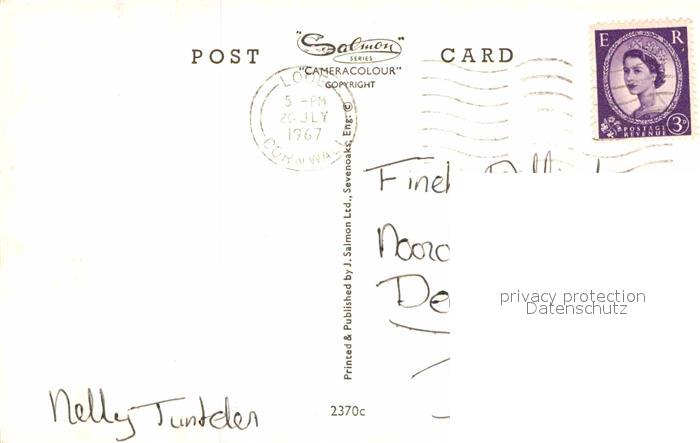 POST "Salmon" CARD
SERIES
"CAMERACOLOUR"
COPYRIGHT
LOOE
5 -PM
20 JLY
1967
CORNWALL
E R
3D
POSTAGE
REVENUE
Printed & Published by J. Salmon Ltd., Sevenoaks, Eng. ©
privacy protection
Datenschutz
Nelly
2370c